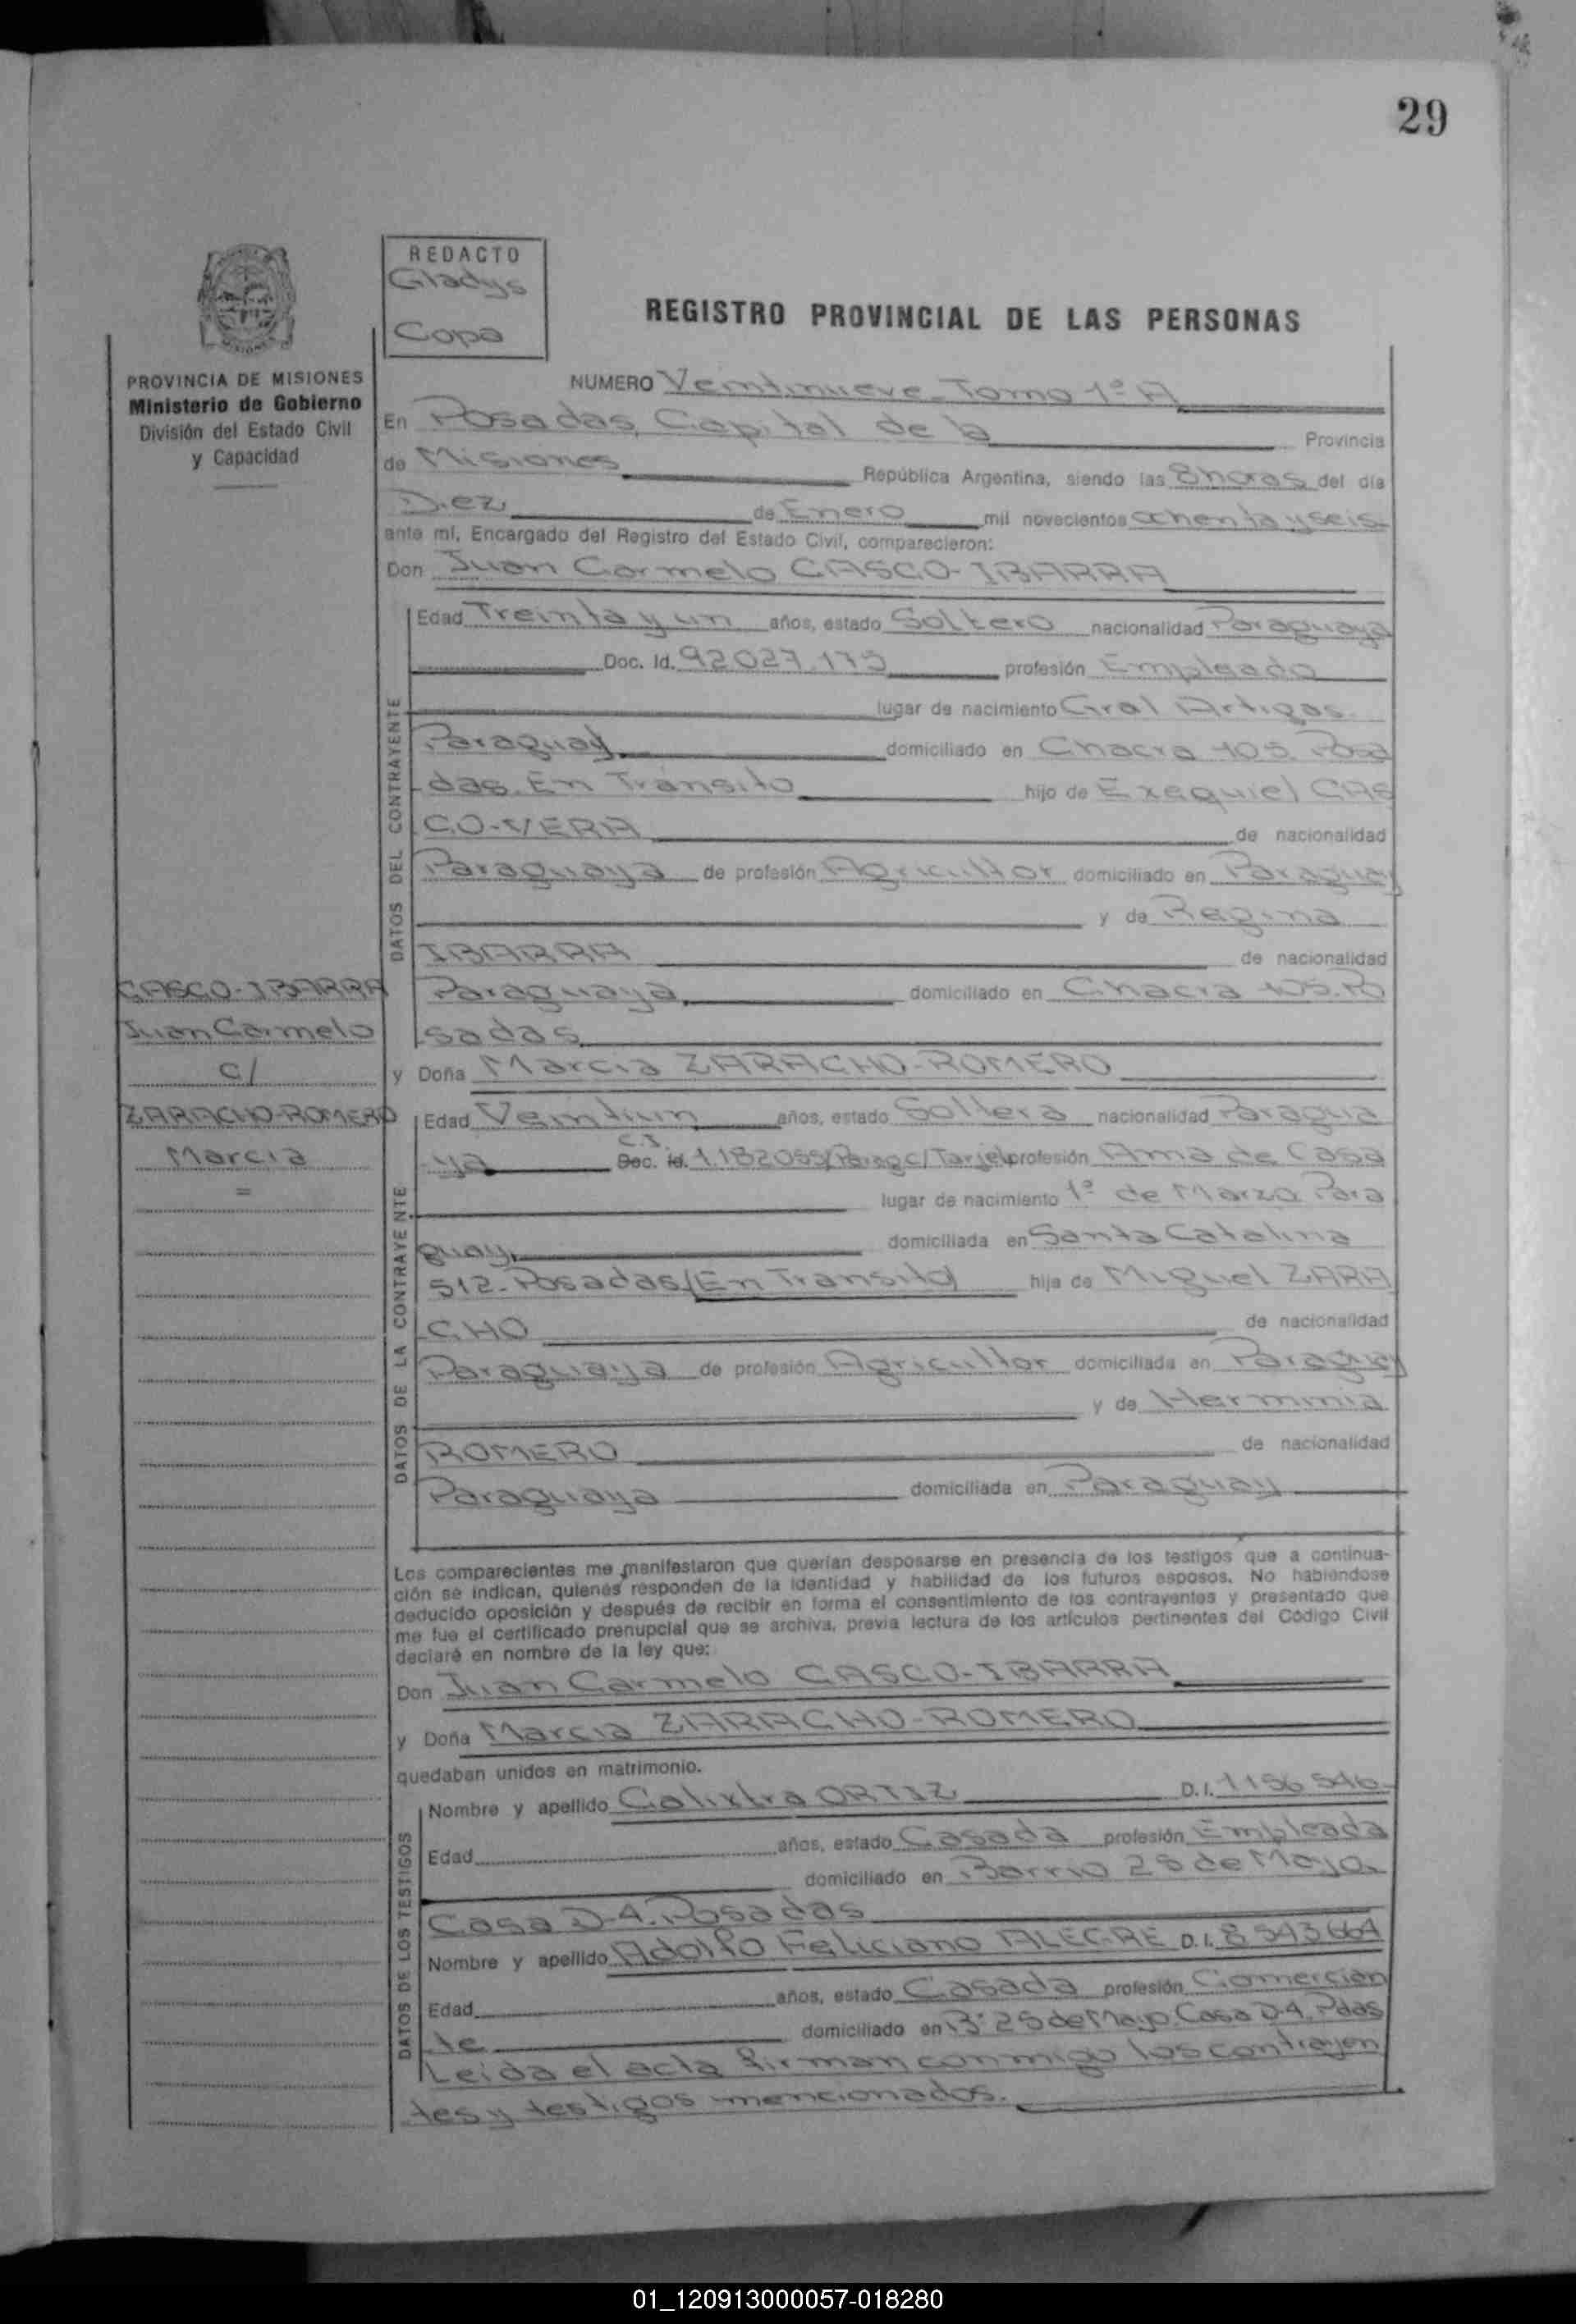 29
REDACTO
Gladys
Copa
REGISTRO PROVINCIAL DE LAS PERSONAS
PROVINCIA DE MISIONES
Ministerio de Gobierno
División del Estado Civil
y Capacidad
NUMERO Veintinueve - Tomo 1º A
En Posadas, Capital de la Provincia
de Misiones República Argentina, siendo las 8 horas del día
Diez de Enero mil novecientos ochenta y seis
ante mí, Encargado del Registro del Estado Civil, comparecieron:
Don Juan Carmelo GASCO-IBARRA
DATOS DEL CONTRAYENTE
Edad Treinta y un años, estado Soltero nacionalidad Paraguaya
Doc. Id. 92027.175 profesión Empleado
lugar de nacimiento Gral Artigas
Paraguay domiciliado en Chacra 105. Posa
das. En Transito hijo de Exequiel GAS
CO-VERA de nacionalidad
Paraguaya de profesión Agricultor domiciliado en Paraguay
y de Regina
IBARRA de nacionalidad
Paraguaya domiciliado en Chacra 105. Po
sadas
GASCO-IBARRA
Juan Carmelo
c/
ZARACHO-ROMERO
Marcia
=
y Doña Marcia ZARACHO-ROMERO
DATOS DE LA CONTRAYENTE
Edad Veintiun años, estado Soltera nacionalidad Paragua
C.I.
ya Doc. Id. 1.182055/Parag c/Tarjeta profesión Ama de Casa
lugar de nacimiento 1º de Marzo Para
guay domiciliada en Santa Catalina
512-Posadas/(En Transito) hija de Miguel ZARA
CHO de nacionalidad
Paraguaya de profesión Agricultor domiciliada en Paraguay
y de Herminia
ROMERO de nacionalidad
Paraguaya domiciliada en Paraguay
Los comparecientes me manifestaron que querían desposarse en presencia de los testigos que a continua-
ción se indican, quienes responden de la identidad y habilidad de los futuros esposos. No habiéndose
deducido oposición y después de recibir en forma el consentimiento de los contrayentes y presentado que
me fue el certificado prenupcial que se archiva, previa lectura de los artículos pertinentes del Código Civil
declaré en nombre de la ley que:
Don Juan Carmelo GASCO-IBARRA
y Doña Marcia ZARACHO-ROMERO
quedaban unidos en matrimonio.
DATOS DE LOS TESTIGOS
Nombre y apellido Calixtra ORTIZ D.I. 1156546
Edad años, estado Casada profesión Empleada
domiciliado en Barrio 25 de Mayo
Casa D-4. Posadas
Nombre y apellido Adolfo Feliciano ALEGRE D.I. 8543664
Edad años, estado Casada profesión Comercian
te domiciliado en Bº 25 de Mayo Casa D-4. Pdas
Leida el acta firman conmigo los contrayen
tes y testigos mencionados.
01_120913000057-018280